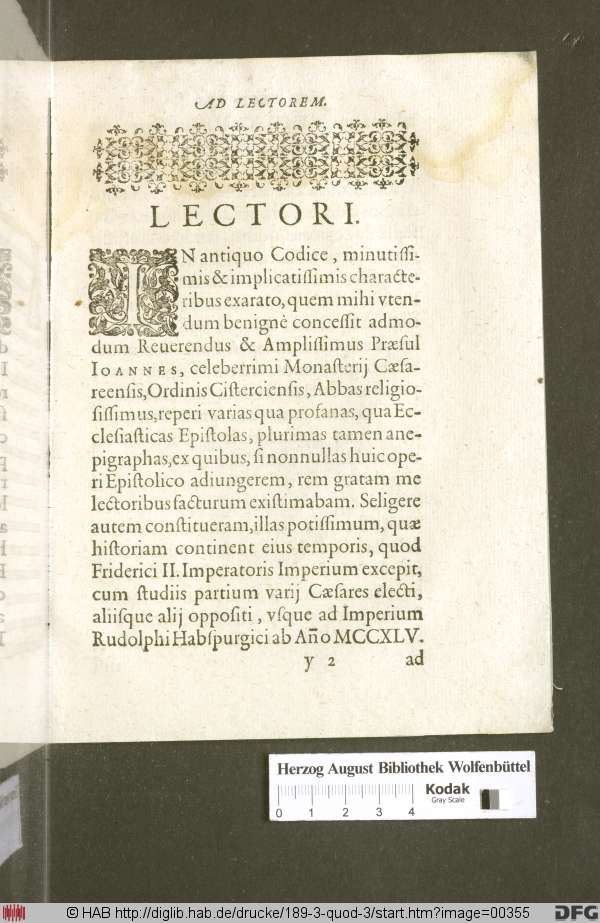 AD LECTOREM.
LECTORI.
IN antiquo Codice, minutiſſi-
mis & implicatiſſimis characte-
ribus exarato, quem mihi vten-
dum benignè conceſſit admo-
dum Reuerendus & Ampliſſimus Præſul
IOANNES, celeberrimi Monaſterij Cæſa-
reenſis, Ordinis Ciſtercienſis, Abbas religio-
ſiſſimus, reperi varias qua profanas, qua Ec-
cleſiaſticas Epiſtolas, plurimas tamen ane-
pigraphas, ex quibus, ſi nonnullas huic ope-
ri Epiſtolico adiungerem, rem gratam me
lectoribus facturum exiſtimabam. Seligere
autem conſtitueram, illas potiſſimum, quæ
hiſtoriam continent eius temporis, quod
Friderici II. Imperatoris Imperium excepit,
cum ſtudiis partium varij Cæſares electi,
aliiſque alij oppoſiti, vſque ad Imperium
Rudolphi Habſpurgici ab Año MCCXLV.
y 2 ad
Herzog August Bibliothek Wolfenbüttel
0 1 2 3 4
Kodak
Gray Scale
© HAB http://diglib.hab.de/drucke/189-3-quod-3/start.htm?image=00355
DFG